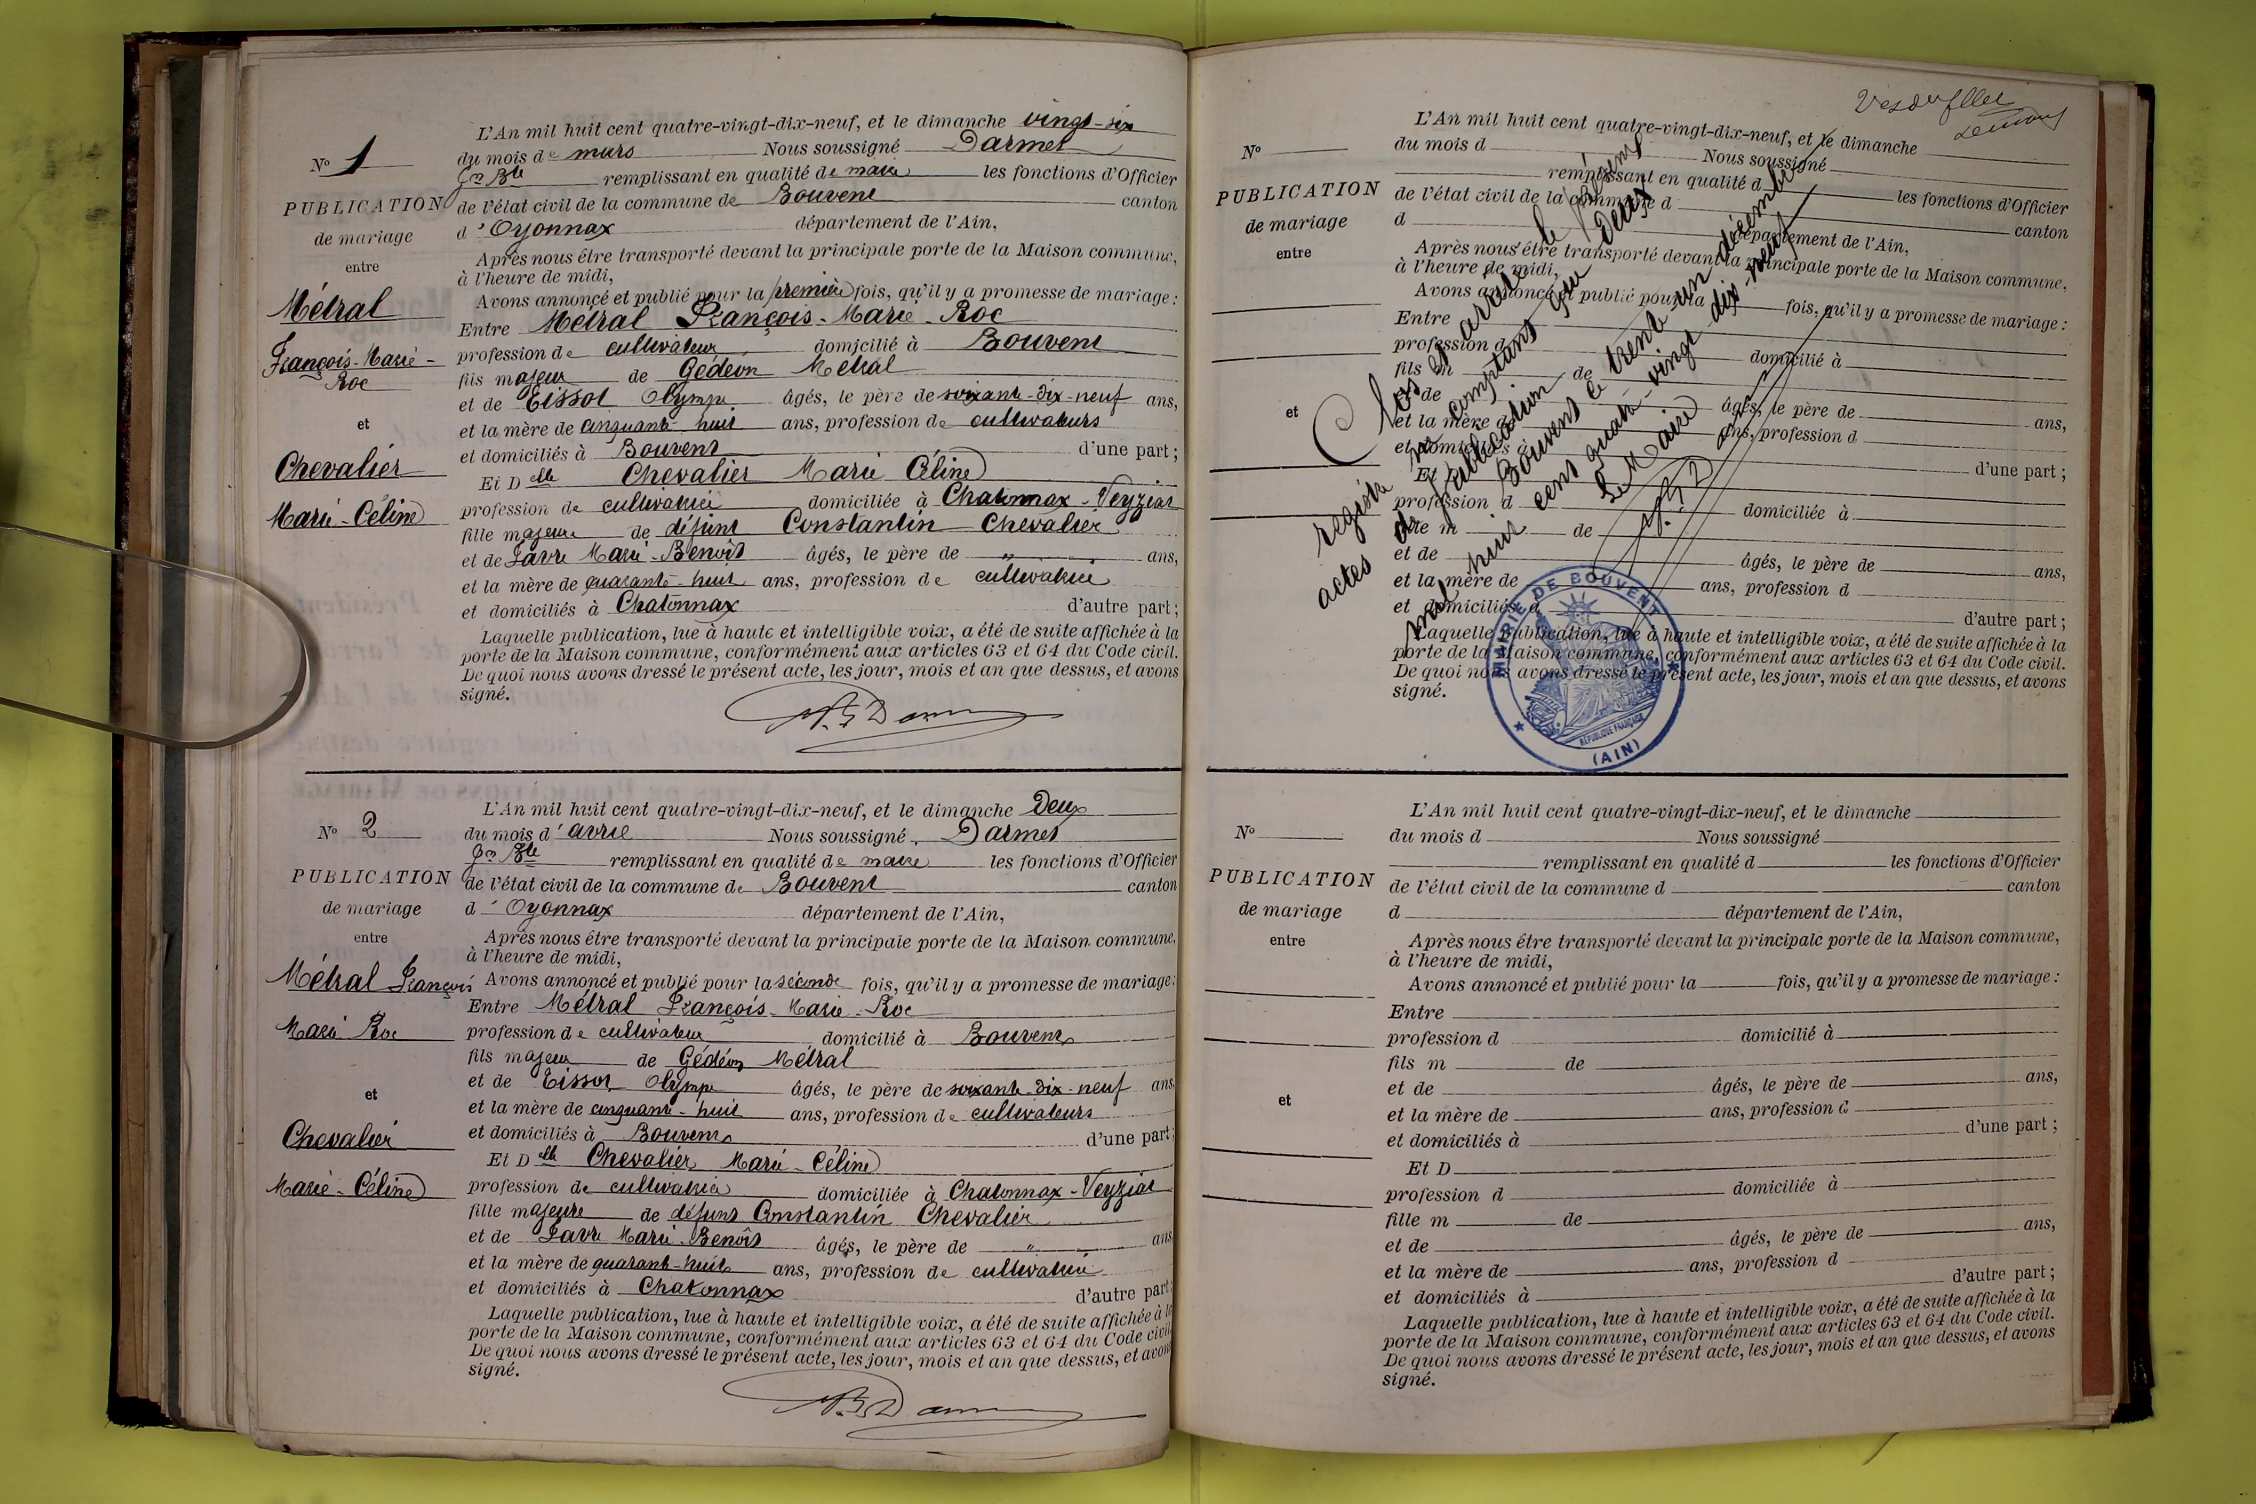 L'An mil huit cent quatre-vingt-dix-neuf, et le dimanche vingt-six
Nº 1
du mois de mars Nous soussigné Darmet
Jn Bte remplissant en qualité de maire les fonctions d'Officier
PUBLICATION
de l'état civil de la commune de Bouvent canton
de mariage
d'Oyonnax département de l'Ain,
entre
Après nous être transporté devant la principale porte de la Maison commune,
à l'heure de midi,
Avons annoncé et publié pour la première fois, qu'il y a promesse de mariage :
Métral
Entre Métral François-Marie-Roc
François-Marie-
profession de cultivateur domicilié à Bouvent
Roc
fils majeur de Gédéon Métral
et de Tissot Olympe âgés, le père de soixante-dix-neuf ans,
et
et la mère de cinquante-huit ans, profession de cultivateurs
et domiciliés à Bouvent d'une part ;
Chevalier
Et Delle Chevalier Marie Céline
profession de cultivatrice domiciliée à Chatonnax-Veyziat
Marie-Céline
fille majeure de défunt Constantin Chevalier
et de Favre Marie-Benoît âgés, le père de " ans,
et la mère de quarante-huit ans, profession de cultivatrice
et domiciliés à Chatonnax d'autre part ;
Laquelle publication, lue à haute et intelligible voix, a été de suite affichée à la
porte de la Maison commune, conformément aux articles 63 et 64 du Code civil.
De quoi nous avons dressé le présent acte, les jour, mois et an que dessus, et avons
signé.
L'An mil huit cent quatre-vingt-dix-neuf, et le dimanche Deux
Nº 2
du mois d'avril Nous soussigné Darmet
Jn Bte remplissant en qualité de maire les fonctions d'Officier
PUBLICATION
de l'état civil de la commune de Bouvent canton
de mariage
d'Oyonnax département de l'Ain,
entre
Après nous être transporté devant la principale porte de la Maison commune,
à l'heure de midi,
Métral François
Avons annoncé et publié pour la seconde fois, qu'il y a promesse de mariage :
Entre Métral François-Marie-Roc
Marie Roc
profession de cultivateur domicilié à Bouvent
fils majeur de Gédéon Métral
et de Tissot Olympe âgés, le père de soixante-dix-neuf ans
et
et la mère de cinquante-huit ans, profession de cultivateurs
et domiciliés à Bouvent d'une part ;
Chevalier
Et Delle Chevalier Marie-Céline
Marie-Céline
profession de cultivatrice domiciliée à Chatonnax-Veyziat
fille majeure de défunt Constantin Chevalier
et de Favre Marie-Benoît âgés, le père de " ans
et la mère de quarante-huit ans, profession de cultivatrice
et domiciliés à Chatonnax d'autre part ;
Laquelle publication, lue à haute et intelligible voix, a été de suite affichée à la
porte de la Maison commune, conformément aux articles 63 et 64 du Code civil
De quoi nous avons dressé le présent acte, les jour, mois et an que dessus, et avons
signé.
L'An mil huit cent quatre-vingt-dix-neuf, et le dimanche
Nº
du mois d Nous soussigné
remplissant en qualité d les fonctions d'Officier
PUBLICATION
de l'état civil de la commune d canton
de mariage
d département de l'Ain,
entre
Après nous être transporté devant la principale porte de la Maison commune,
à l'heure de midi,
Avons annoncé et publié pour la fois, qu'il y a promesse de mariage :
Entre
profession d domicilié à
fils m de
et de âgés, le père de ans,
et
et la mère de ans, profession d
et domiciliés à d'une part ;
Et D
profession d domiciliée à
fille m de
et de âgés, le père de ans,
et la mère de ans, profession d
et domiciliés à d'autre part ;
Laquelle publication, lue à haute et intelligible voix, a été de suite affichée à la
porte de la Maison commune, conformément aux articles 63 et 64 du Code civil.
De quoi nous avons dressé le présent acte, les jour, mois et an que dessus, et avons
signé.
Clos et arrêté le présent
registre ne comptant que Deux
actes de Publication
Bouvent le trente-un décembre
mil huit cent quatre-vingt-dix-neuf
Le Maire
MAIRIE DE BOUVENT
RÉPUBLIQUE FRANÇAISE
(AIN)
L'An mil huit cent quatre-vingt-dix-neuf, et le dimanche
Nº
du mois d Nous soussigné
remplissant en qualité d les fonctions d'Officier
PUBLICATION
de l'état civil de la commune d canton
de mariage
d département de l'Ain,
entre
Après nous être transporté devant la principale porte de la Maison commune,
à l'heure de midi,
Avons annoncé et publié pour la fois, qu'il y a promesse de mariage :
Entre
profession d domicilié à
fils m de
et de âgés, le père de ans,
et
et la mère de ans, profession d
et domiciliés à d'une part ;
Et D
profession d domiciliée à
fille m de
et de âgés, le père de ans,
et la mère de ans, profession d
et domiciliés à d'autre part ;
Laquelle publication, lue à haute et intelligible voix, a été de suite affichée à la
porte de la Maison commune, conformément aux articles 63 et 64 du Code civil.
De quoi nous avons dressé le présent acte, les jour, mois et an que dessus, et avons
signé.